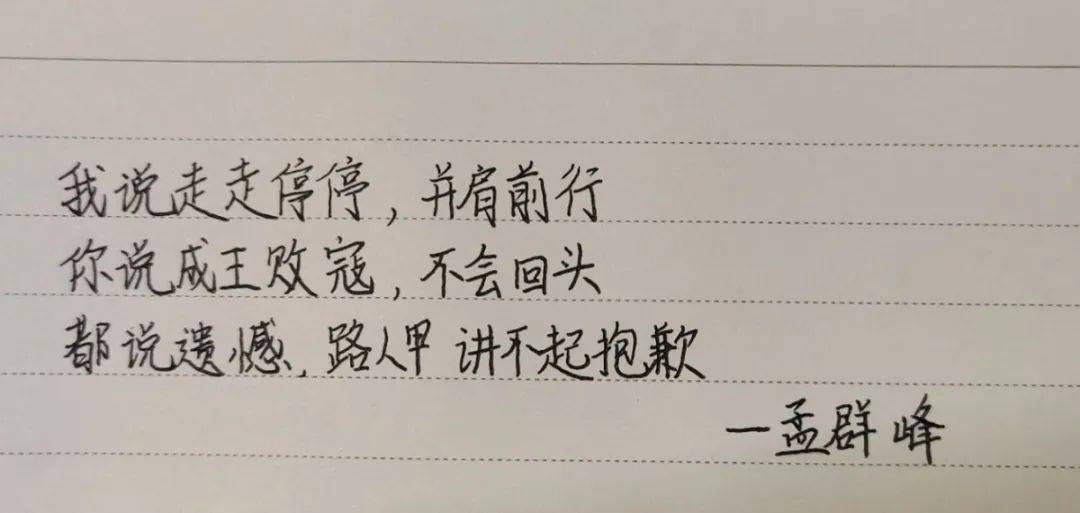 我说走走停停,并肩前行
你说成王败寇,不会回头
都说遗憾,路人甲 讲不起抱歉
—孟群峰